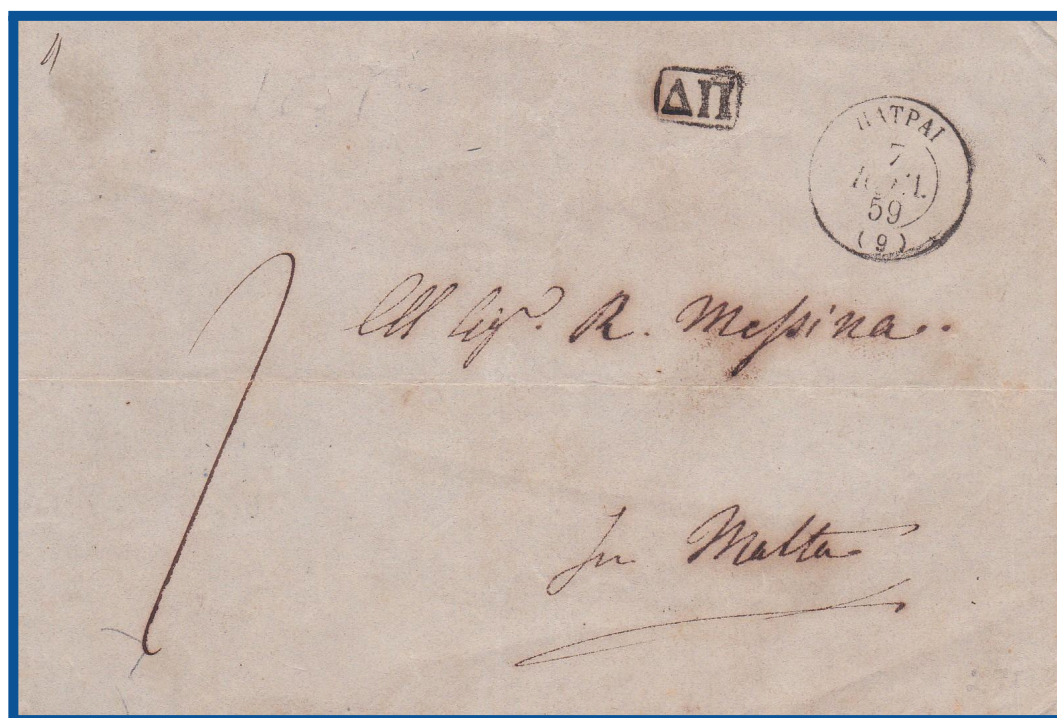 ΔΠ
ΠΑΤΡΑΙ
7
59
(9)
All Sigr. R. Messina..
In Malta